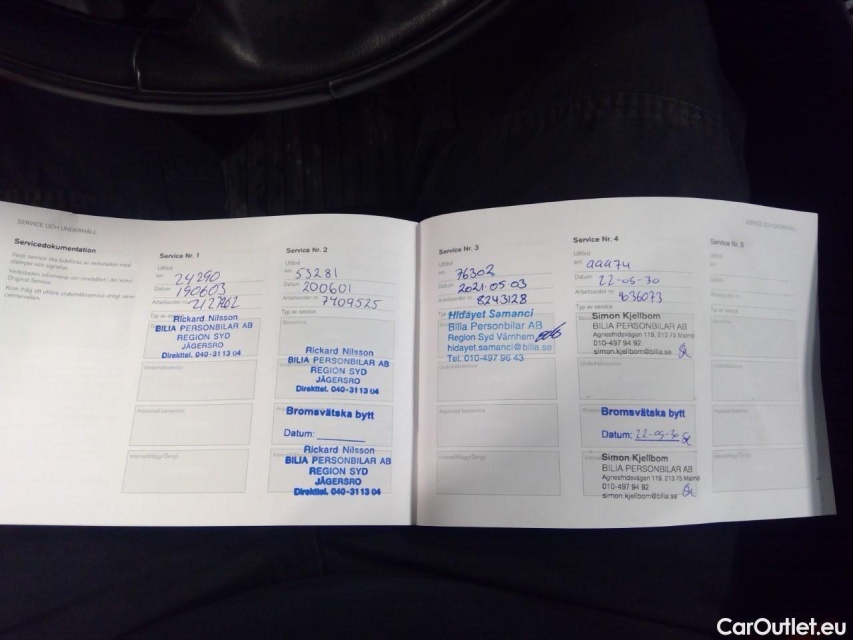 SERVICE OCH UNDERHÅLL
Servicedokumentation
Service Nr. 1
Utförd
km 24290
Datum 190603
Arbetsorder nr 2127862
Typ av service
Rickard Nilsson
BILIA PERSONBILAR AB
REGION SYD
JÄGERSRO
Direkttel. 040-31 13 04
Service Nr. 2
Utförd
km 53281
Datum 200601
Arbetsorder nr 7409525
Typ av service
Rickard Nilsson
BILIA PERSONBILAR AB
REGION SYD
JÄGERSRO
Direkttel. 040-31 13 04
Bromsvätska bytt
Datum:
Rickard Nilsson
BILIA PERSONBILAR AB
REGION SYD
JÄGERSRO
Direkttel. 040-31 13 04
Service Nr. 3
Utförd
km 76302
Datum 2021-05-03
Arbetsorder nr 8243128
Typ av service
Hidayet Samanci
Bilia Personbilar AB
Region Syd Värnhem
hidayet.samanci@bilia.se
Tel. 010-497 96 43
Service Nr. 4
Utförd
km
Datum 22-05-30
Arbetsorder nr 9636073
Typ av service
Simon Kjellbom
BILIA PERSONBILAR AB
Agnesfridsvägen 119, 213 75 Malmö
010-497 94 92
simon.kjellbom@bilia.se
Bromsvätska bytt
Datum: 22-05-30
Simon Kjellbom
BILIA PERSONBILAR AB
Agnesfridsvägen 119, 213 75 Malmö
010-497 94 92
simon.kjellbom@bilia.se
SERVICE OCH UNDERHÅLL
Service Nr. 5
CarOutlet.eu